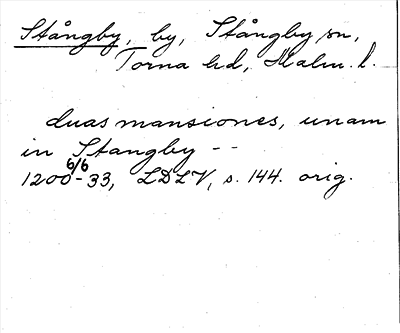 Stångby, by, Stångby sn,
Torna hd, Malm. l.
duas mansiones, unam
in Stangby --
6/6
1200-33, LDLV, s. 144. orig.